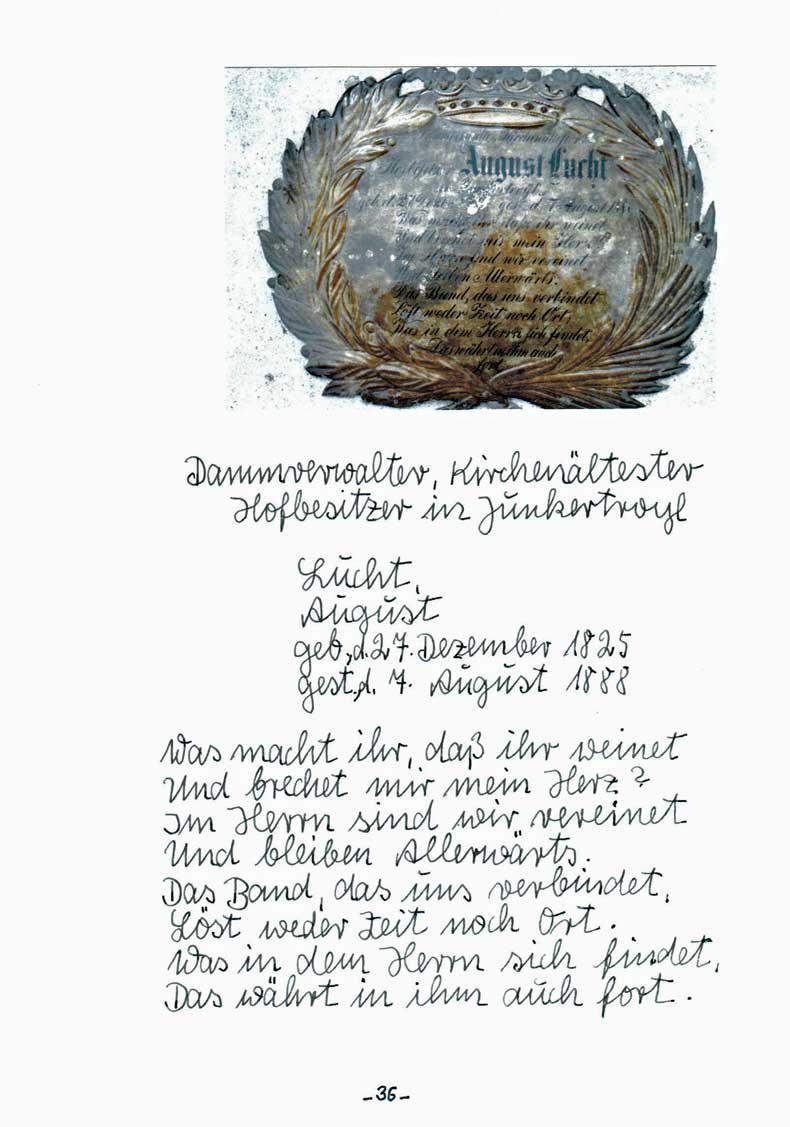 August Lucht
Was macht ihr, daß ihr weinet
Und brechet mir mein Herz?
Im Herrn sind wir vereinet
Und bleiben Allerwärts.
Das Band, das uns verbindet
Löst weder Zeit noch Ort.
Was in dem Herrn sich findet,
Das währt in ihm auch
fort.
Dammverwalter, Kirchenältester
Hofbesitzer in Junkertroyl
Lucht,
August
geb. d. 27. Dezember 1825
gest. d. 7. August 1888
Was macht ihr, daß ihr weinet
Und brechet mir mein Herz?
Im Herrn sind wir vereinet
Und bleiben Allerwärts.
Das Band, das uns verbindet,
Löst weder Zeit noch Ort.
Was in dem Herrn sich findet,
Das währt in ihm auch fort.
-36-